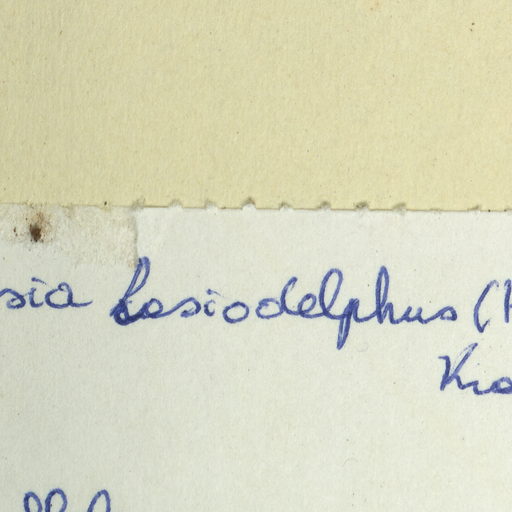 sia lasiodelphus (
Kra